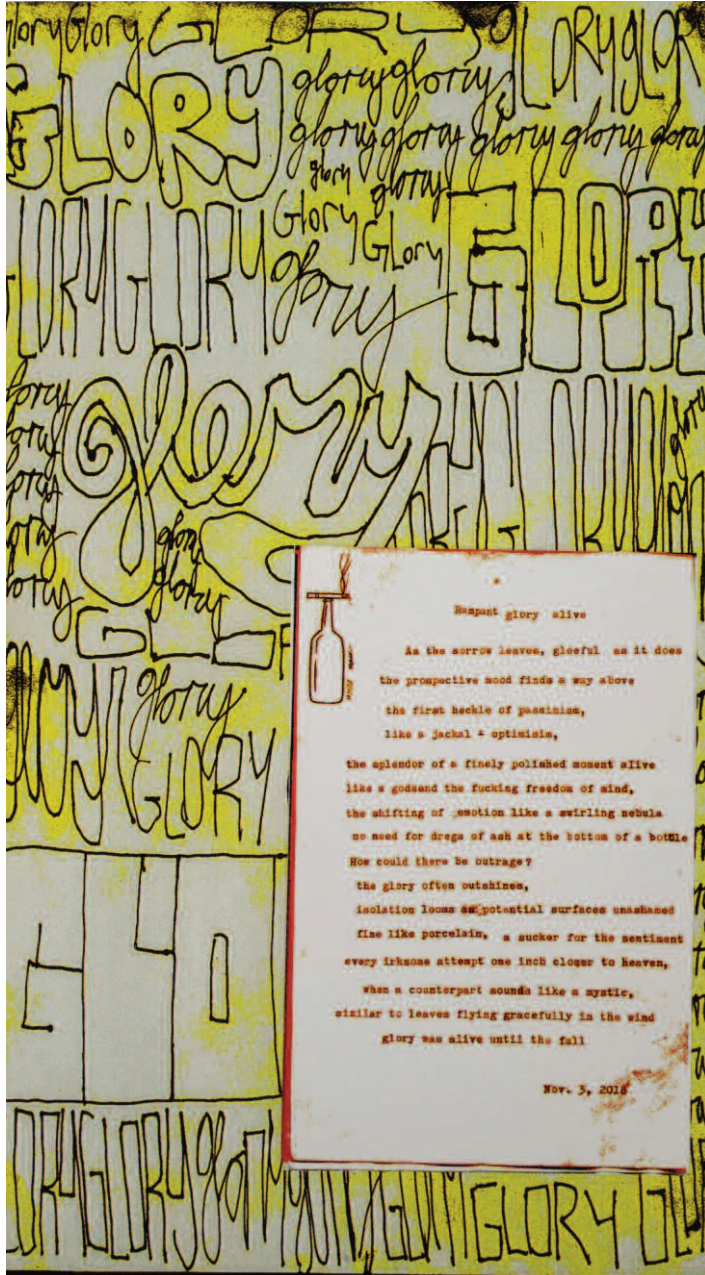 gloryGlory GLORY GLORYGLOR
GLORY gloryglory
gloryglory glory glory glory
glory glory
GLORYGLORY Glory Glory GLORY
glory
glory glory GLORY glory
glory
glory
glory glory
glory glory
glory
GLORY
GLO
Rampant glory alive
As the sorrow leaves, gleeful as it does
the prospective mood finds a way above
the first heckle of passimism,
like a jackal - optimisim,
the splendor of a finely polished moment alive
like a godsend the fucking freedom of mind,
the shifting of emotion like a swirling nebula
no need for dregs of ash at the bottom of a bottle
How could there be outrage?
the glory often outshines,
isolation looms as potential surfaces unashamed
fine like porcelain, a sucker for the sentiment
every irksome attempt one inch closer to heaven,
when a counterpart sounds like a mystic,
similar to leaves flying gracefully in the wind
glory was alive until the fall
Nov. 3, 2018
GLORYGLORYglory GLORY GLORY